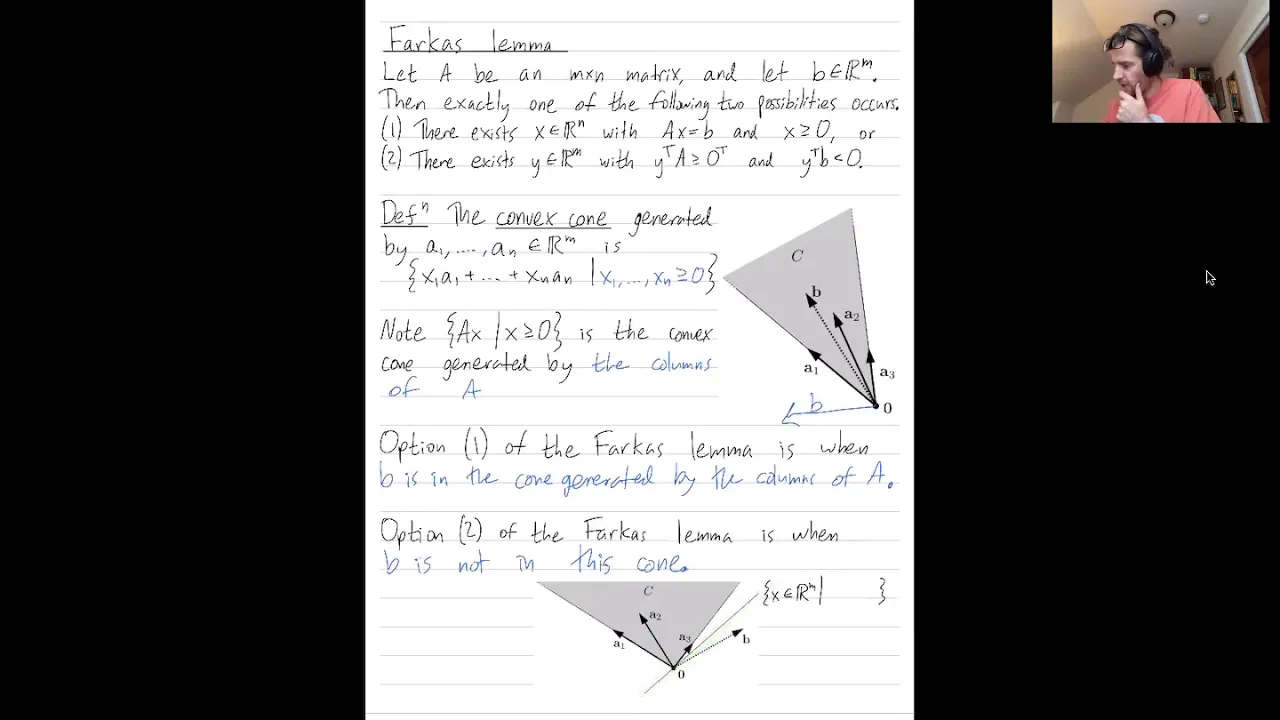 Farkas lemma
Let A be an m×n matrix, and let b∈ℝᵐ.
Then exactly one of the following two possibilities occurs.
(1) There exists x∈ℝⁿ with Ax=b and x≥0, or
(2) There exists y∈ℝᵐ with yᵀA≥0ᵀ and yᵀb<0.
Defⁿ The convex cone generated
by a₁,....,aₙ ∈ℝᵐ is
{x₁a₁+...+xₙaₙ | x₁,...,xₙ≥0}
C
b
a₂
a₁
a₃
b
0
Note {Ax | x≥0} is the convex
cone generated by the columns
of A
Option (1) of the Farkas lemma is when
b is in the cone generated by the columns of A.
Option (2) of the Farkas lemma is when
b is not in this cone.
C
{x∈ℝᵐ| }
a₂
a₁
a₃
b
0